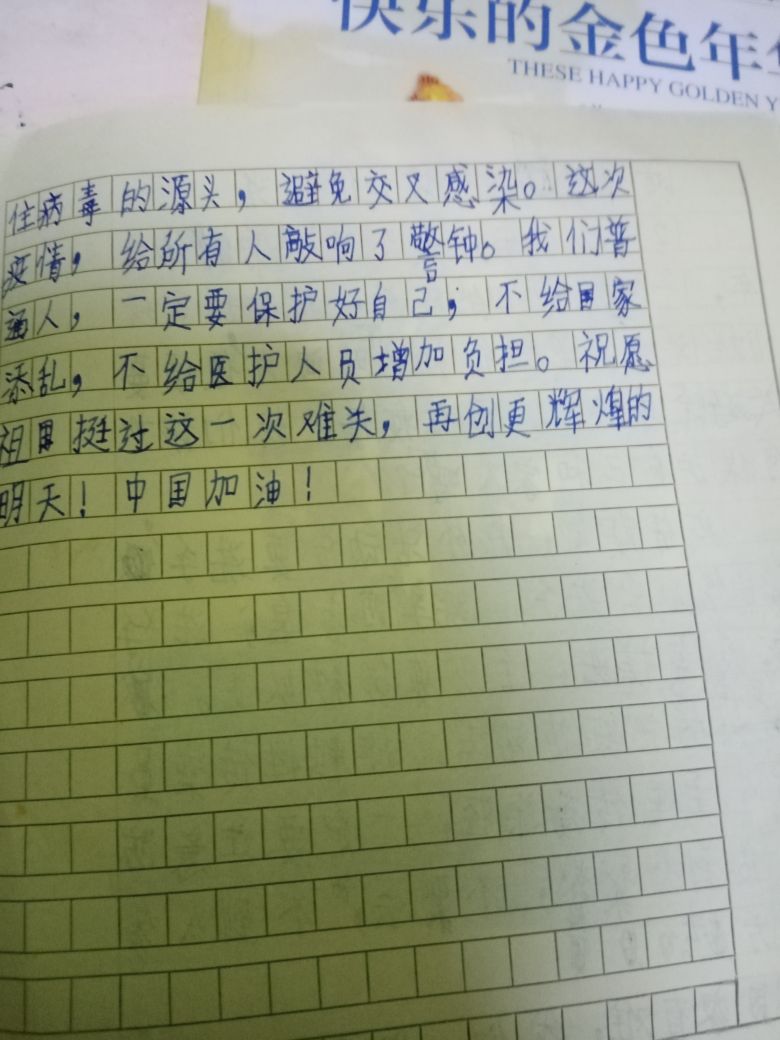 快乐的金色年华
THESE HAPPY GOLDEN Y
住病毒的源头，避免交叉感染。这次
疫情，给所有人敲响了警钟。我们普
通人，一定要保护好自己，不给国家
添乱，不给医护人员增加负担。祝愿
祖国挺过这一次难关，再创更辉煌的
明天！中国加油！